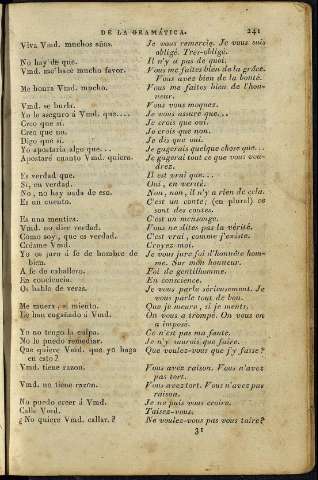 DE LA GRAMÁTICA. 241
Viva Vmd. muchos años. Je vous remercie. Je vous suis
obligé. Très-obligé.
No hay de que. Il n'y a pas de quoi.
Vmd. me hace mucho favor. Vous me faites bien de la grâce.
Vous avez bien de la bonté.
Me honra Vmd. mucho. Vous me faites bien de l'hon-
neur.
Vmd. se burla. Vous vous moquez.
Yo le aseguro á Vmd. que.... Je vous assure que...
Creo que si. Je crois que oui.
Creo que no. Je crois que non.
Digo que si. Je dis que oui.
Yo apostaria algo que... Je gagerais quelque chose que...
Apostaré cuanto Vmd. quiera. Je gagerai tout ce que vous vou-
drez.
Es verdad que. Il est vrai que...
Si, en verdad. Oui, en verité.
No, no hay nada de eso. Non, non, il n'y a rien de cela.
Es un cuento. C'est un conte; (en plural) ce
sont des contes.
Es una mentira. C'est un mensonge.
Vmd. no dice verdad. Vous ne dites pas la vérité.
Como soy, que es verdad. C'est vrai, comme j'existe.
Créame Vmd. Croyez-moi.
Yo os juro á fe de hombre de Je vous jure foi d'honnête hom-
bien. me. Sur mon honneur.
A fe de caballero. Foi de gentilhomme.
En conciencia. En conscience.
Os hablo de veras. Je vous parle sérieusement. Je
vous parle tout de bon.
Me muera, si miento. Que je meure, si je ments.
Le han engañado á Vmd. On vous a trompé. On vous en
a imposé.
Yo no tengo la culpa. Ce n'est pas ma faute.
No le puedo remediar. Je n'y saurais que faire.
Que quiere Vmd. que yo haga Que voulez-vous que j'y fasse?
en esto?
Vmd. tiene razon. Vous avez raison. Vous n'avez
pas tort.
Vmd. no tiene razon. Vous avez tort. Vous n'avez pas
raison.
No puedo creer á Vmd. Je ne puis vous croire.
Calle Vmd. Taisez-vous.
¿No quiere Vmd. callar? Ne voulez-vous pas vous taire?
31